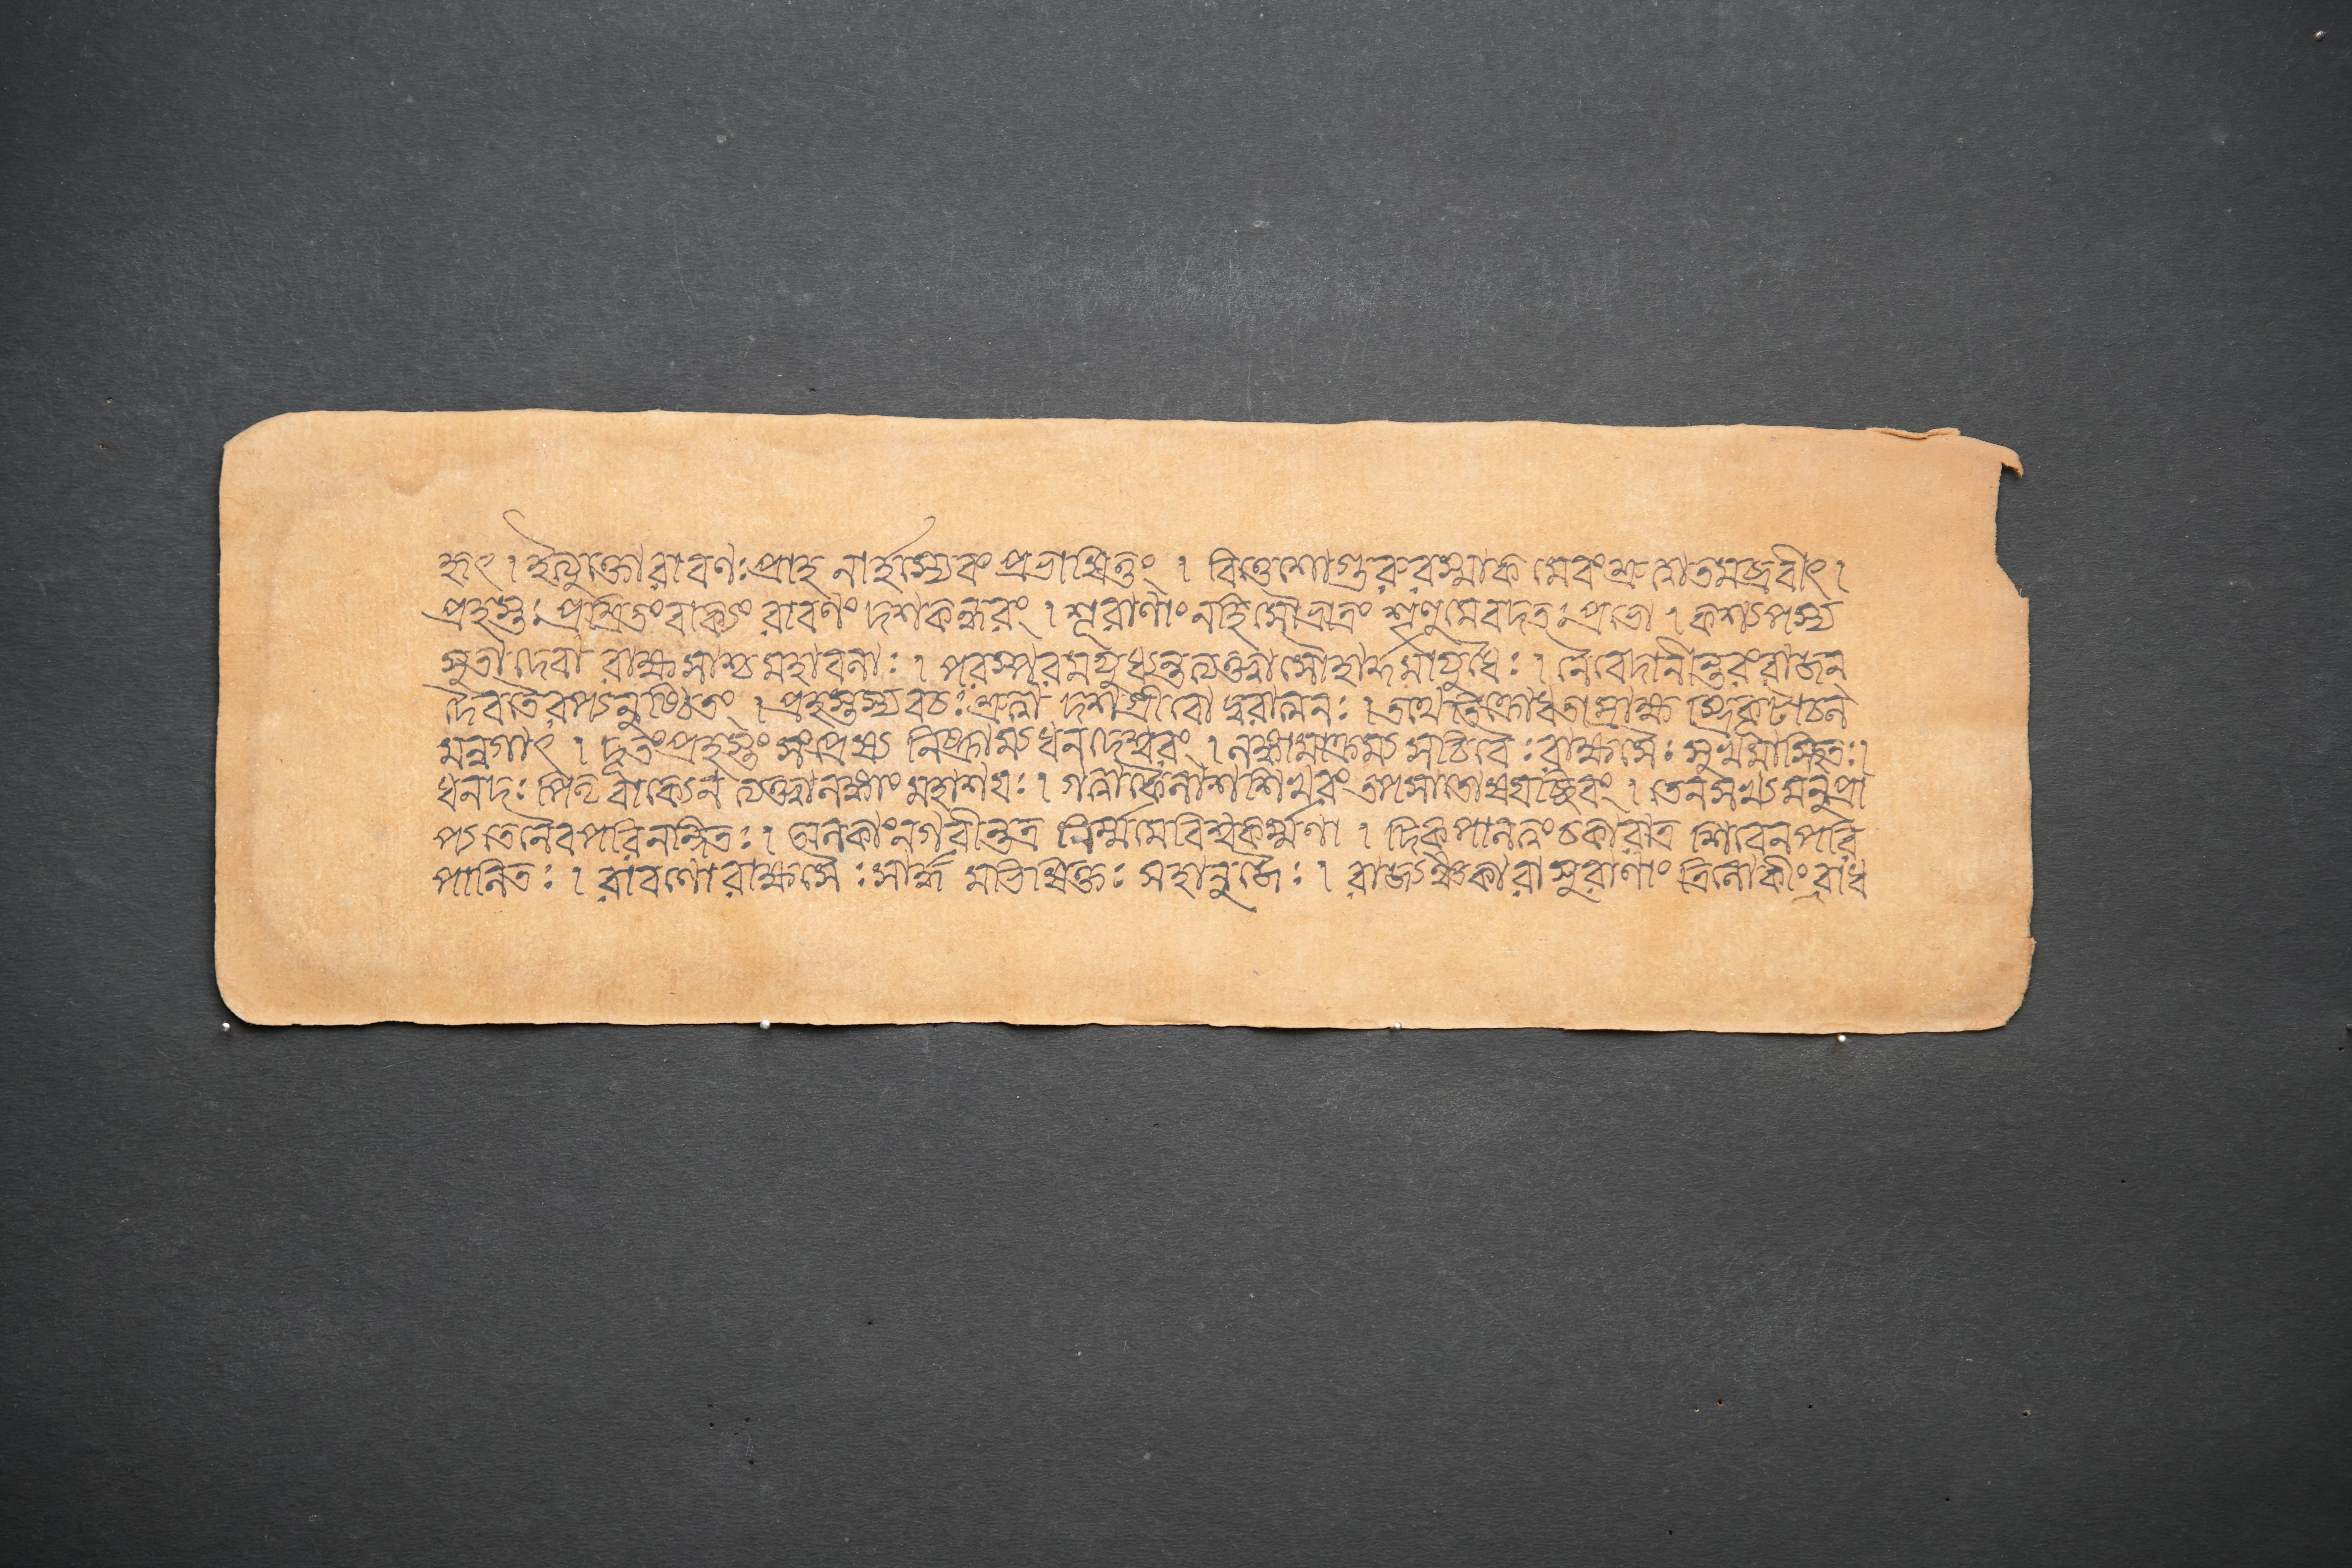 হৃৎ । ইত্যুক্তো রাবণঃ প্রাহ নার্হস্যেবং প্রভাষিতুং । বিত্তেশো গুরুরস্মাক মেবং শ্রুত্বা তমব্রবীৎ ।
প্রহস্তঃ প্রশ্রিতং বাক্যং রাবণং দশকন্ধরং । শূরাণাং নহি সৌভ্রাত্রং শৃণু মে বদতঃ প্রভো । কশ্যপস্য
সুতা দেবা রাক্ষসাশ্চ মহাবলাঃ । পরস্পরমযুধ্যন্ত ত্যক্ত্বা সৌহার্দ্দমায়ুধৈঃ । নৈবেদানীন্তরং রাজন
দৈবতৈরপ্যনুষ্ঠিতং । প্রহস্তস্য বচঃ শ্রুত্বা দশগ্রীবো দুরাত্মনঃ । তথেতি ক্রোধতাম্রাক্ষ স্ত্রিকূটাচল
মন্বগাৎ । দূতং প্রহস্তং সংপ্রেষ্য নিষ্ক্রাম্য ধনদেশ্বরং । লঙ্কামাক্রম্য সচিবৈঃ রাক্ষসৈঃ সুখমাস্থিতঃ ।
ধনদঃ পিতৃবাক্যেন ত্যক্ত্বা লঙ্কাং মহাশয়ঃ । গত্বা কৈলাশশিখরং তপসাতোষয়চ্ছিবং । তেন সখ্যমনুপ্রা
প্য তেনৈব পরিনন্দিতঃ । অলকাং নগরীন্তত্র নির্ম্মমে বিশ্বকর্ম্মণা । দিকপালত্বং চকারাত্র শিবেন পরি
পালিতঃ । রাবণো রাক্ষসৈঃ সার্দ্ধ মভিষিক্তঃ সহানুজৈঃ । রাজ্যঞ্চকারাসুরাণাং ত্রিলোকীং বাধ